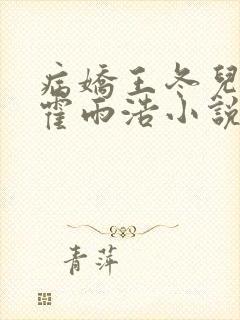 病嬌王冬兒
霍雨浩小說
青萍